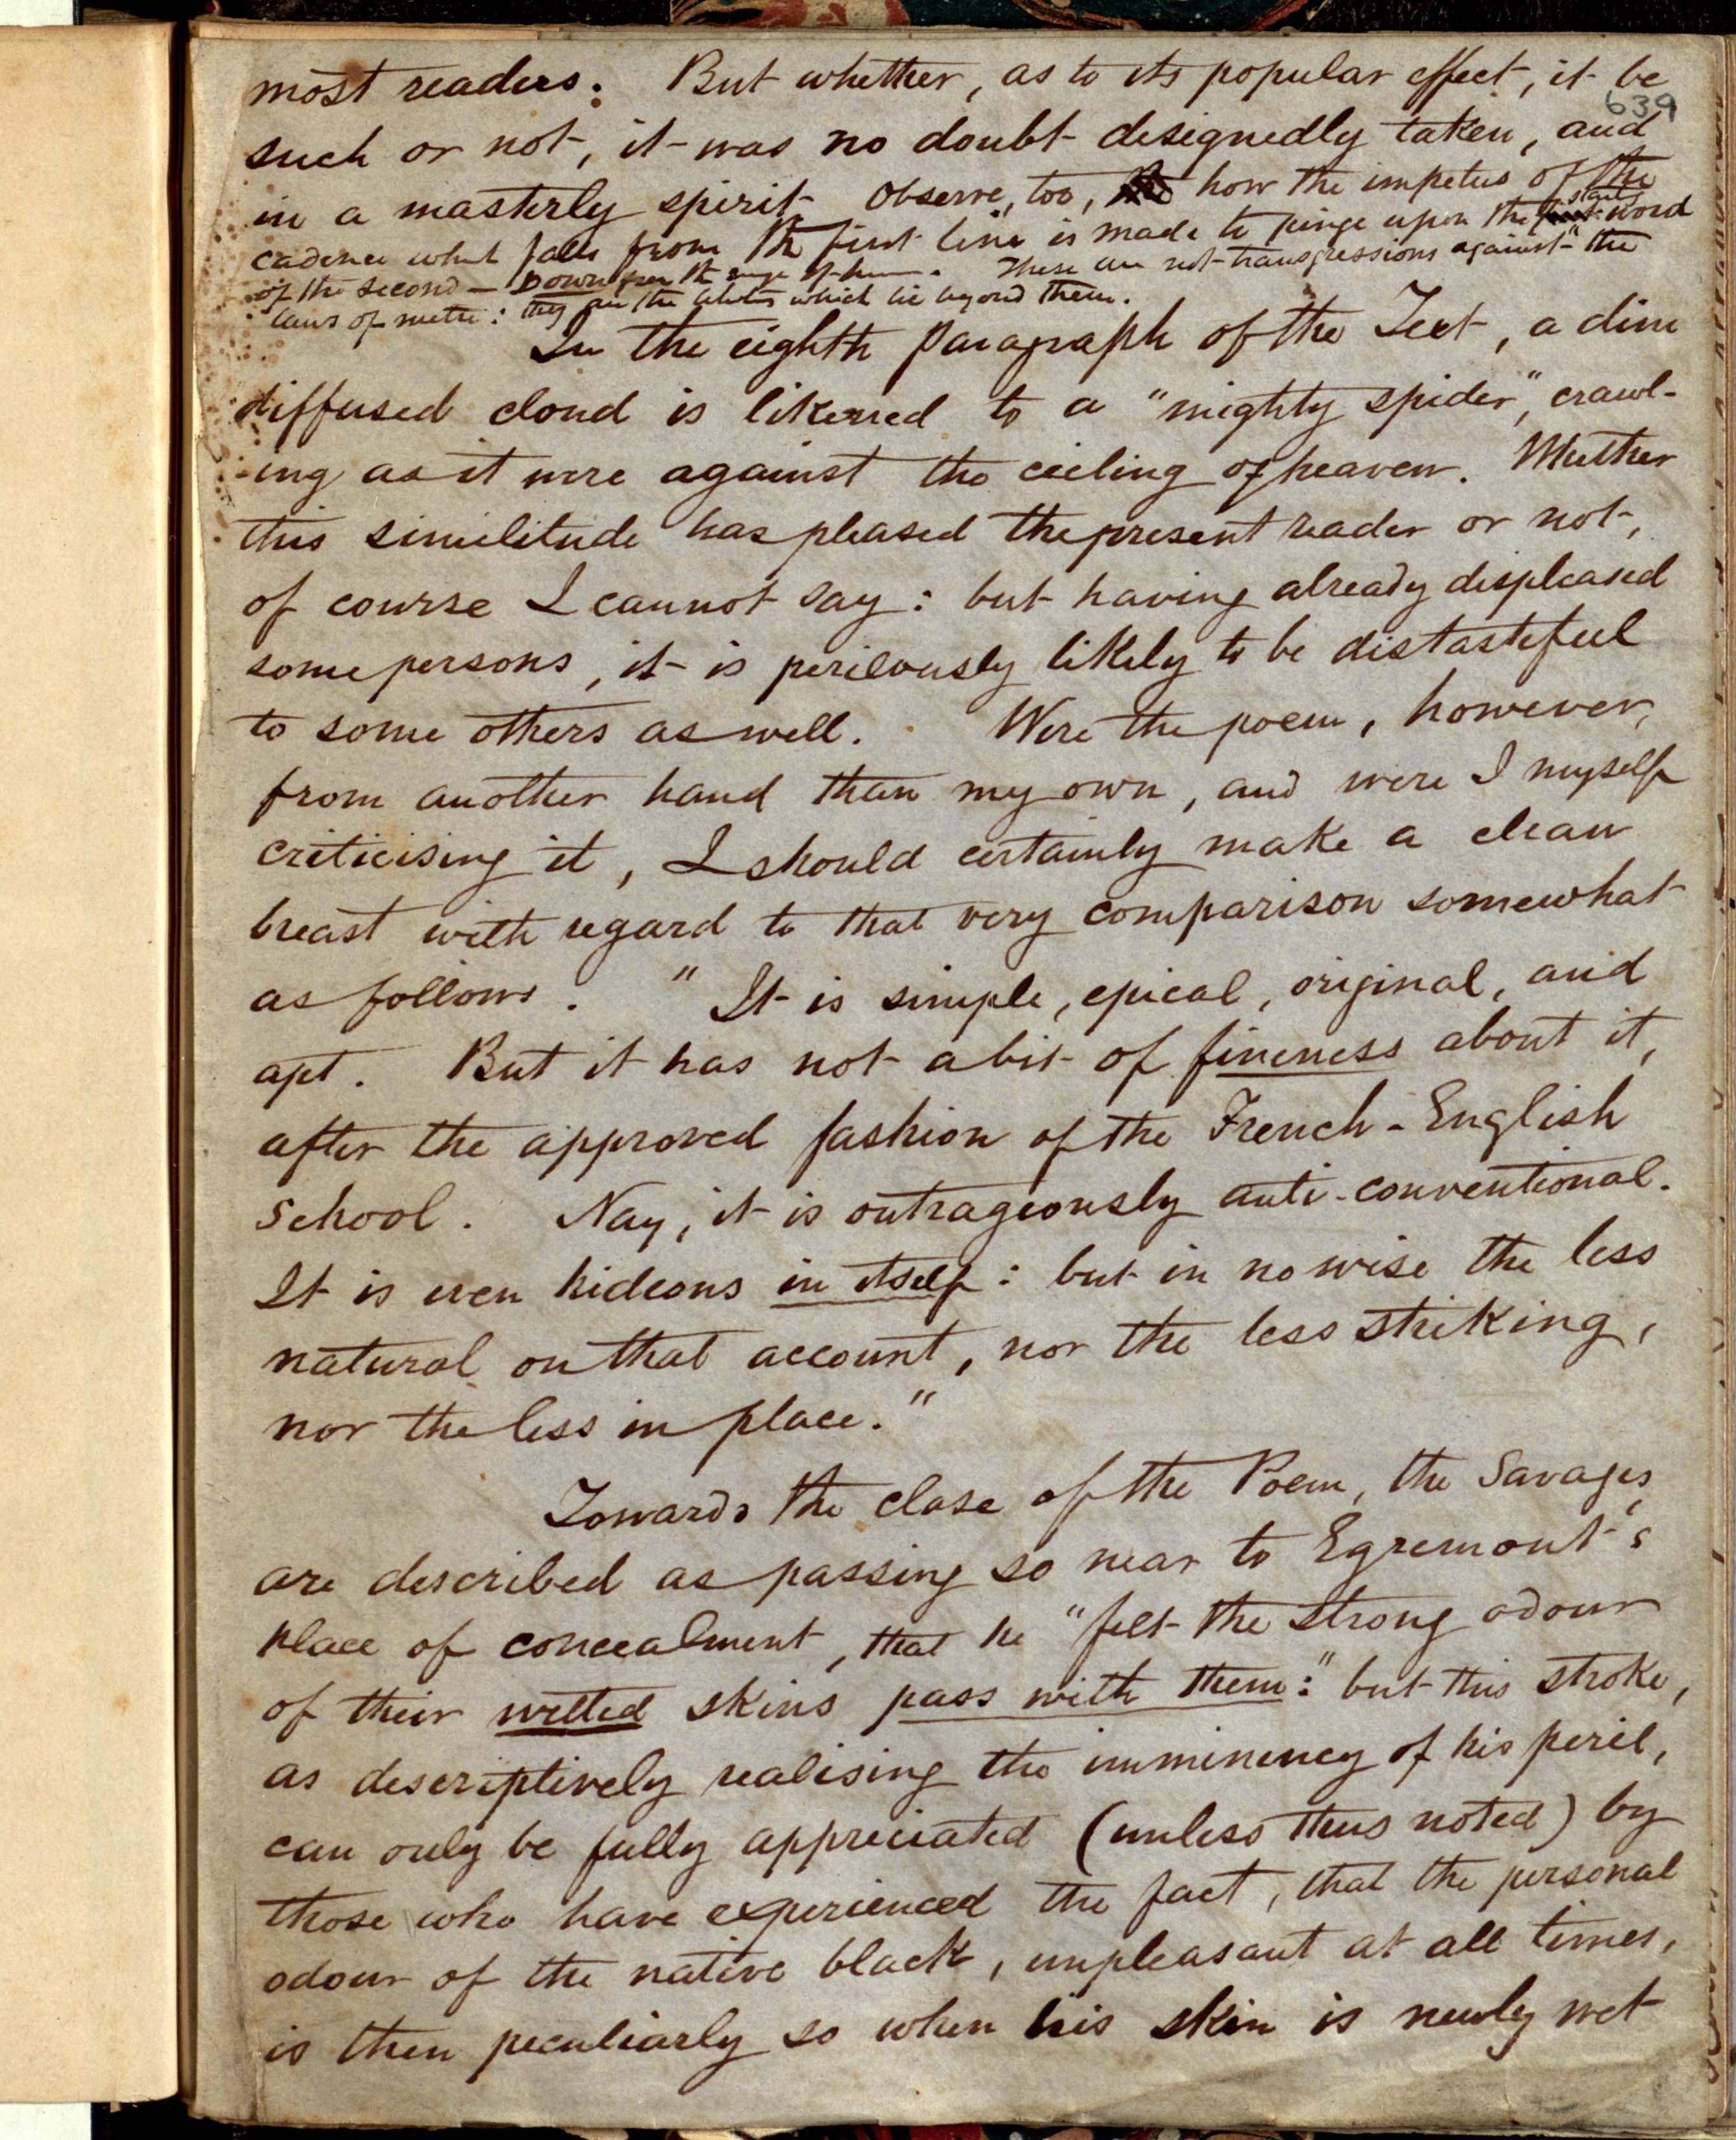 most readers. But whether, as to its popular effect, it be
639
such or not, it was no doubt designedly taken, and
in a masterly spirit. Observe, too, how the impetus of the
cadence what falls from the first line is made to pinge upon the start word
of the second — Down from the surge of . These are not transgressions against the
laws of metre: they are the which lie beyond them.
In the eighth paragraph of the Text, a dim
diffused cloud is likened to a "mighty spider", crawl-
-ing as it were against the ceiling of heaven. Whether
this similitude has pleased the present reader or not,
of course I cannot say: but having already displeased
some persons, it is perilously likely to be distasteful
to some others as well. Were the poem, however,
from another hand than my own, and were I myself
criticising it, I should certainly make a clean
breast with regard to that very comparison somewhat
as follows. "It is simple, epical, original, and
apt. But it has not a bit of fineness about it,
after the approved fashion of the French-English
School. Nay, it is outrageously anti-conventional.
It is even hideous in itself: but in nowise the less
natural on that account, nor the less striking,
nor the less in place."
Towards the close of the Poem, the Savages,
are described as passing so near to Egremont's
place of concealment, that he "felt the strong odour
of their wetted skins pass with them:" but this stroke,
as descriptively realising the imminency of his peril,
can only be fully appreciated (unless thus noted) by
those who have experienced the fact, that the personal
odour of the native black, unpleasant at all times,
is then peculiarly so when his skin is newly wet